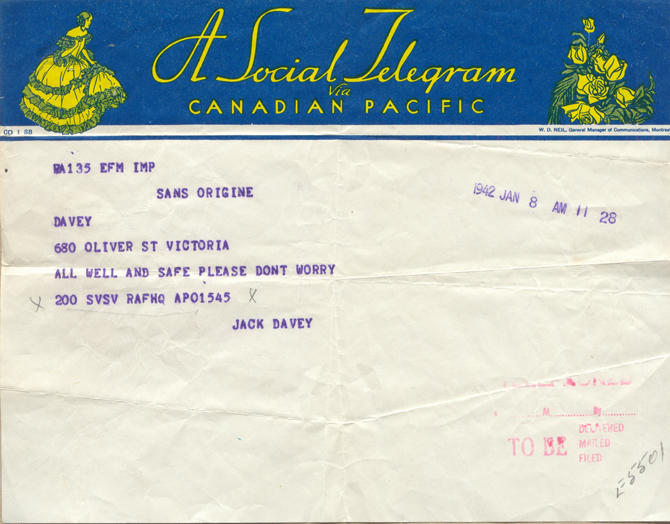 A Social Telegram
Via
CANADIAN PACIFIC
CD 1 SB
W. D. NEIL, General Manager of Communications, Montreal
RA135 EFM IMP
SANS ORIGINE
1942 JAN 8 AM 11 28
DAVEY
680 OLIVER ST VICTORIA
ALL WELL AND SAFE PLEASE DONT WORRY
X 200 SVSV RAFHQ APO1545 X
JACK DAVEY
M By
DELIVERED
TO BE MAILED
FILED